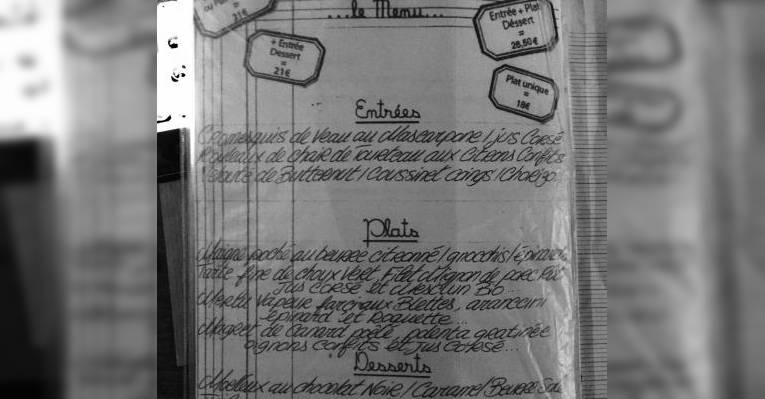 ou
=
31€
...le Menu...
Entrée + Plat
Dessert
=
28,50€
+ Entrée
Dessert
=
21€
Plat unique
=
18€
Entrées
Cromesquis de Veau au Mascarpone / jus Corsé
Rouleaux de chair de Tourteau aux Citrons Confits
Velouté de Butternut / Coussinet coings / Chorizo
Plats
Maigre poché au beurre citronné / gnocchis / épinards
Tarte fine de choux Vert, Filet mignon de porc
jus corsé et Mesclun Bio...
Merlu Vapeur Blettes, arancini
épinard et Roquette...
Magret de Canard poêlé, polenta gratinée
oignons confits et jus Corsé...
Desserts
Moelleux au chocolat Noir / Caramel Beurre Salé